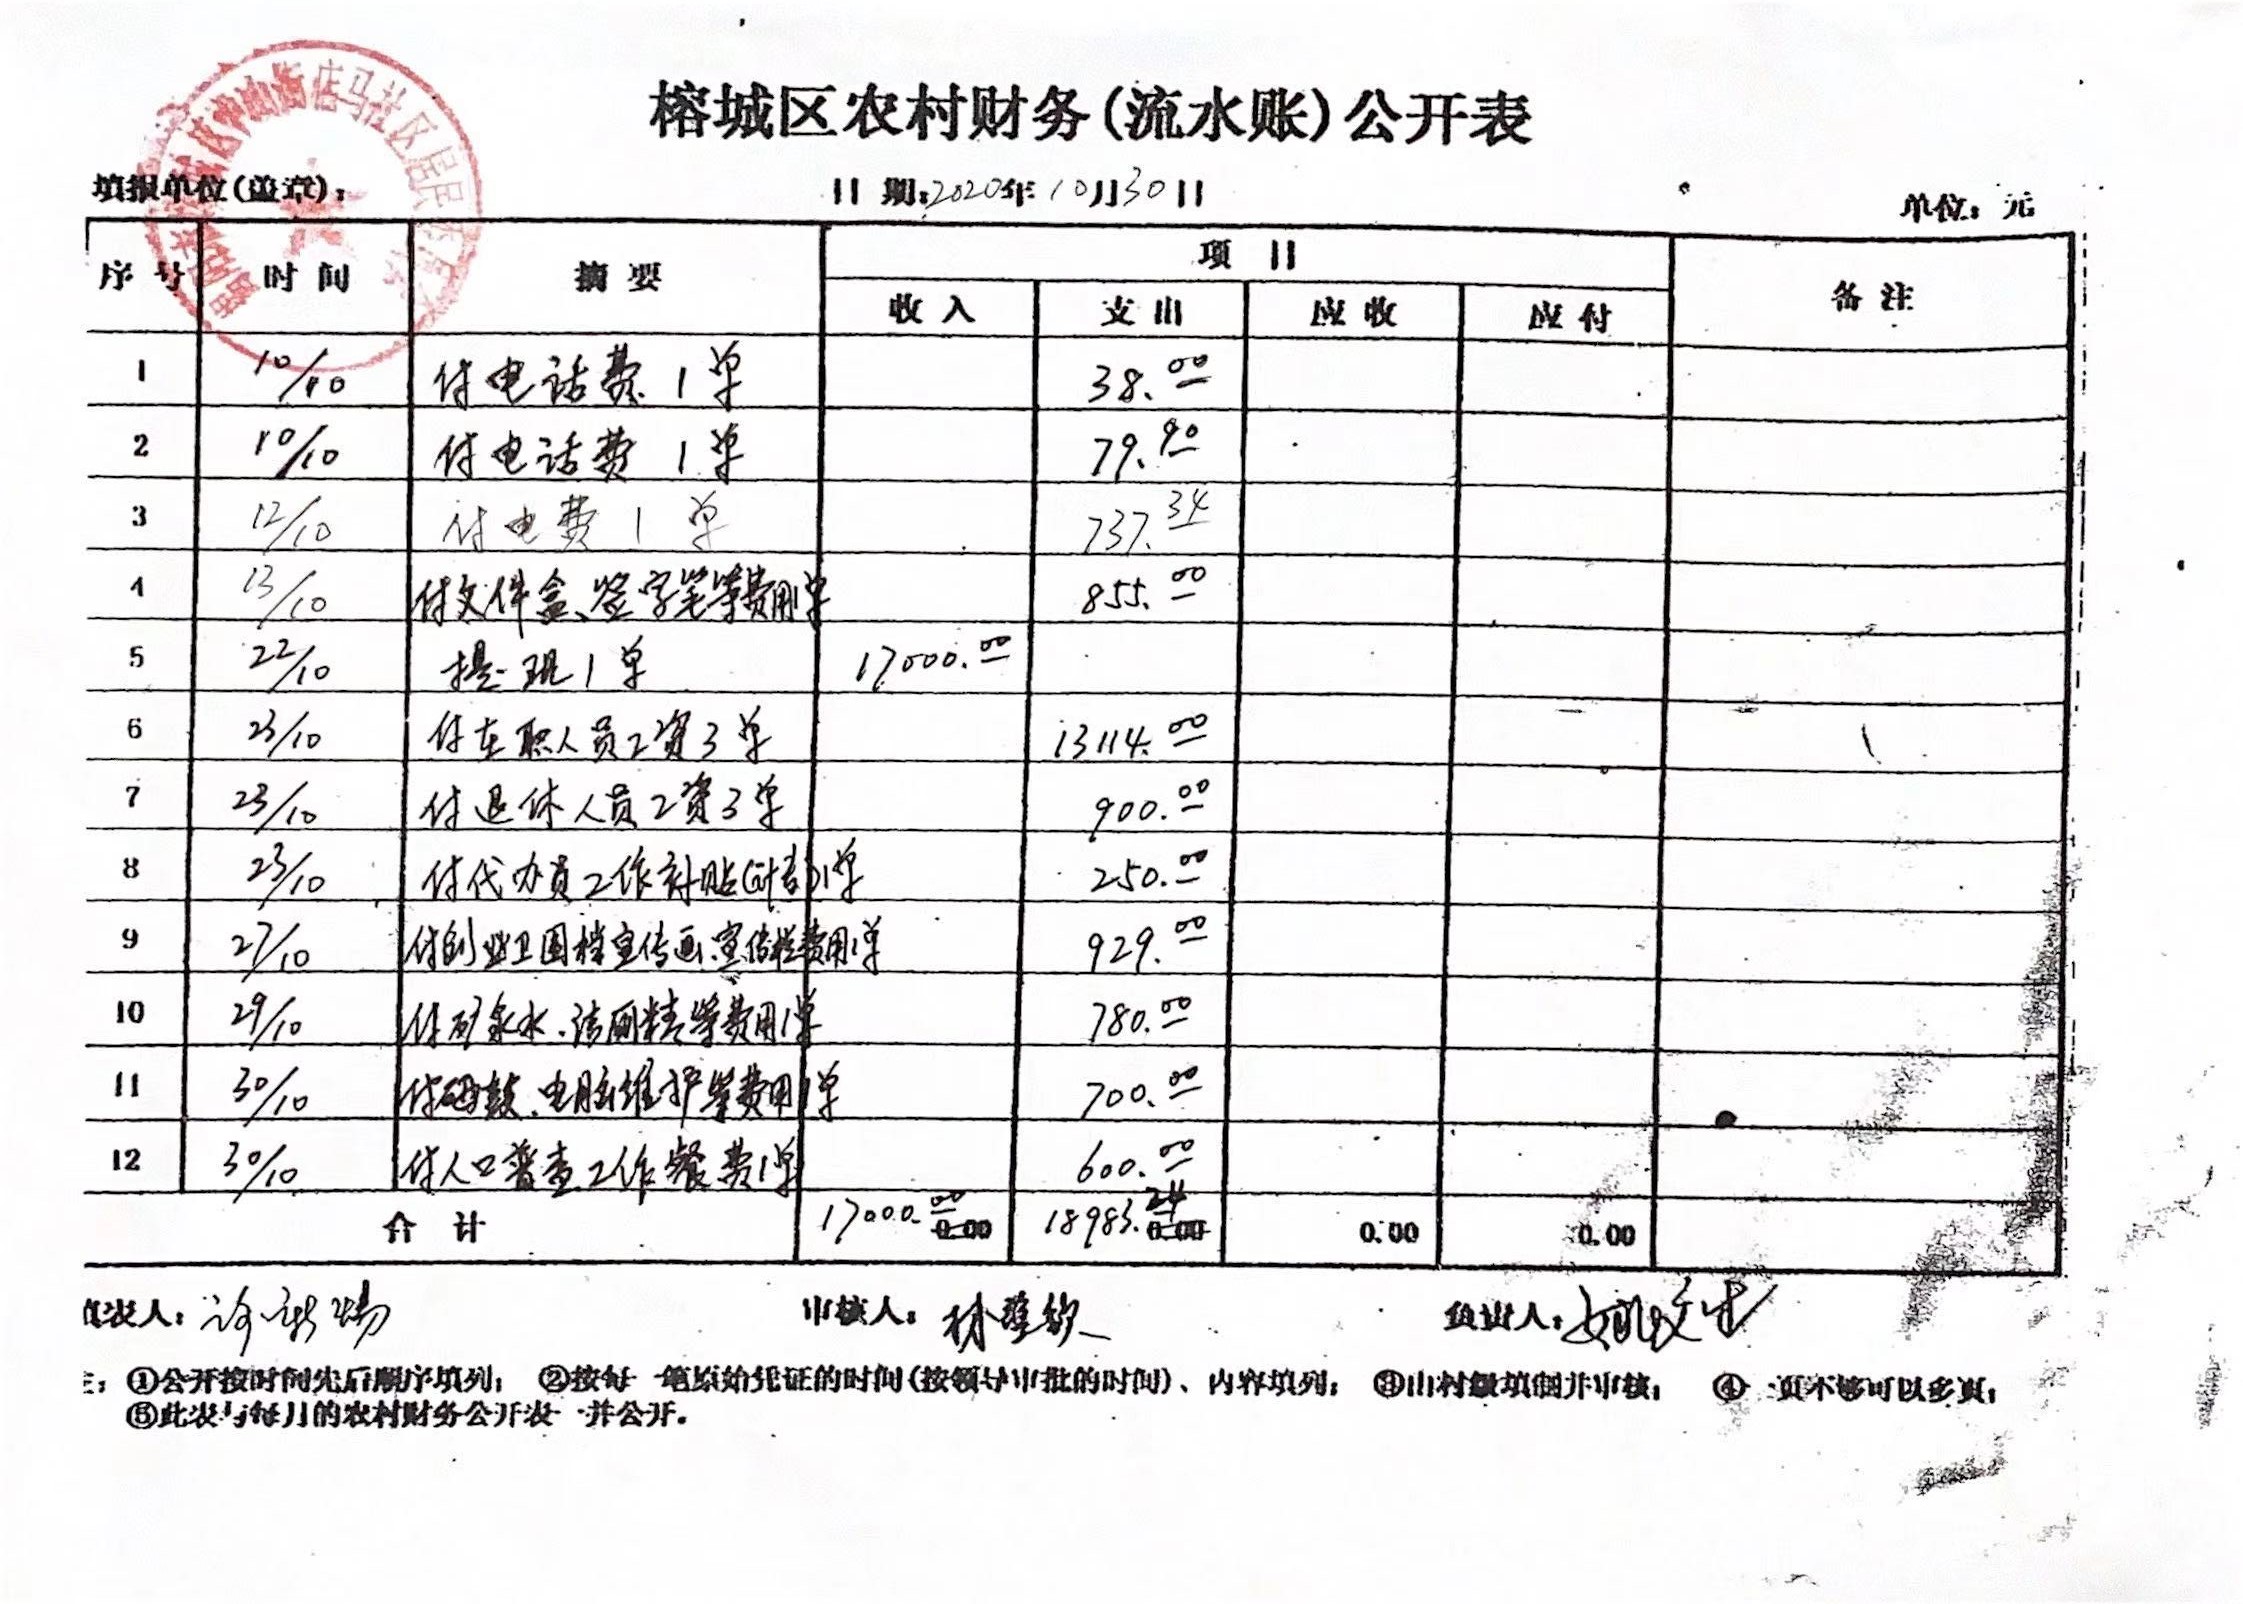 榕城区农村财务(流水账)公开表
填报单位(盖章): 日期:2020年10月30日 单位:元
序号 时间 摘要 项目 备注
收入 支出 应收 应付
1 10/10 付电话费1单 38.00
2 10/10 付电话费1单 79.90
3 12/10 付电费1单 737.34
4 13/10 付文件盒、签字笔等费用1单 855.00
5 22/10 提现1单 17000.00
6 23/10 付在职人员工资3单 13114.00
7 23/10 付退休人员工资3单 900.00
8 23/10 付代办员工作补贴(计生)1单 250.00
9 27/10 付创 卫围档宣传画、宣传栏费用1单 929.00
10 29/10 付矿泉水、洁厕精等费用1单 780.00
11 30/10 付硒鼓、电脑维护等费用1单 700.00
12 30/10 付人口普查工作餐费1单 600.00
合计 17000.00 0.00 18983.24 0.00 0.00 0.00
填表人: 审核人:林 负责人:姚文
注:①公开按时间先后顺序填列; ②按每一笔原始凭证的时间(按领导审批的时间)、内容填列; ③由村级填制并审核; ④一页不够可以多页;
⑤此表与每月的农村财务公开表一并公开。